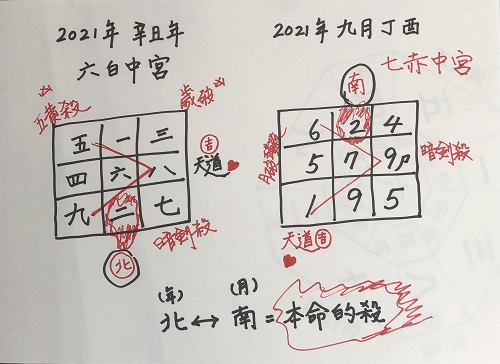 2021年 辛丑年
六白中宮
五黄殺 凶
歳破 凶
五 一 三
四 六 八
九 二 七
吉
天道
暗剣殺
北
2021年九月丁酉
七赤中宮
南
6 2 4
5 7 9
1 9 5
暗剣殺
天道吉
(年) (月)
北↔南=本命的殺